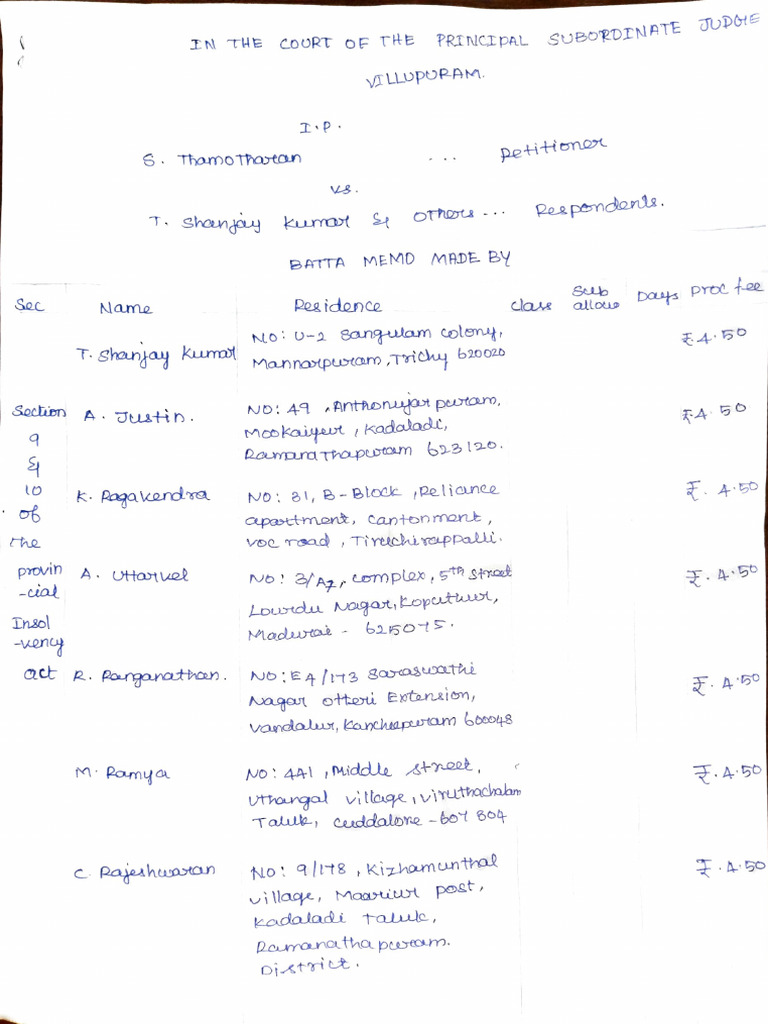 IN THE COURT OF THE PRINCIPAL SUBORDINATE JUDGE
VILLUPURAM.
I.P.
S. Thamotharan ... Petitioner
vs.
T. Shanjay Kumar & others... Respondents.
BATTA MEMO MADE BY
Sec Name Residence class Sub allow Days Proc fee
T. Shanjay Kumar NO: U-2 Sangulam colony, ₹4.50
Mannarpuram, Trichy 620020
Section A. Justin. NO: 49, Anthonujar puram, ₹4.50
9 Mookaiyur, Kadaladi,
& Ramanathapuram 623120.
10 K. Ragakendra NO: 31, B-Block, Reliance ₹. 4.50
of apartment, cantonment,
the voc road, Tiruchirappalli.
provin A. Uttarvel NO: 3/A7, complex, 5th street ₹. 4.50
-cial Lourdu Nagar, Koputhur,
Insol Madurai - 625075.
-vency
act R. Ranganathan. NO: E4/173 Saraswathi ₹. 4.50
Nagar otteri Extension,
vandalur, Kancheepuram 600048
M. Ramya NO: 4A1, Middle street, ₹. 4.50
Uthangal village, viruthachalam
Taluk, cuddalore - 607 804
C. Rajeshwaran NO: 9/178, Kizhamunthal ₹. 4.50
village, Maariur post,
Kadaladi Taluk,
Ramanathapuram.
District.